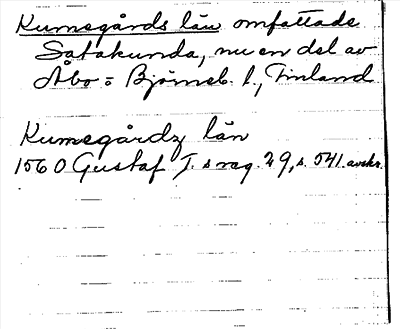 Kumegårds län omfattade
Satakunda, nu en del av
Åbo = Björneb. l., Finland
Kumegårdz län
1560 Gustaf I.s reg. 29, s. 541. avskr.